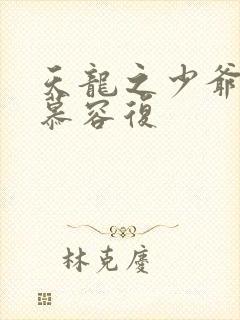 天龍之少爺
慕容復
林克慶